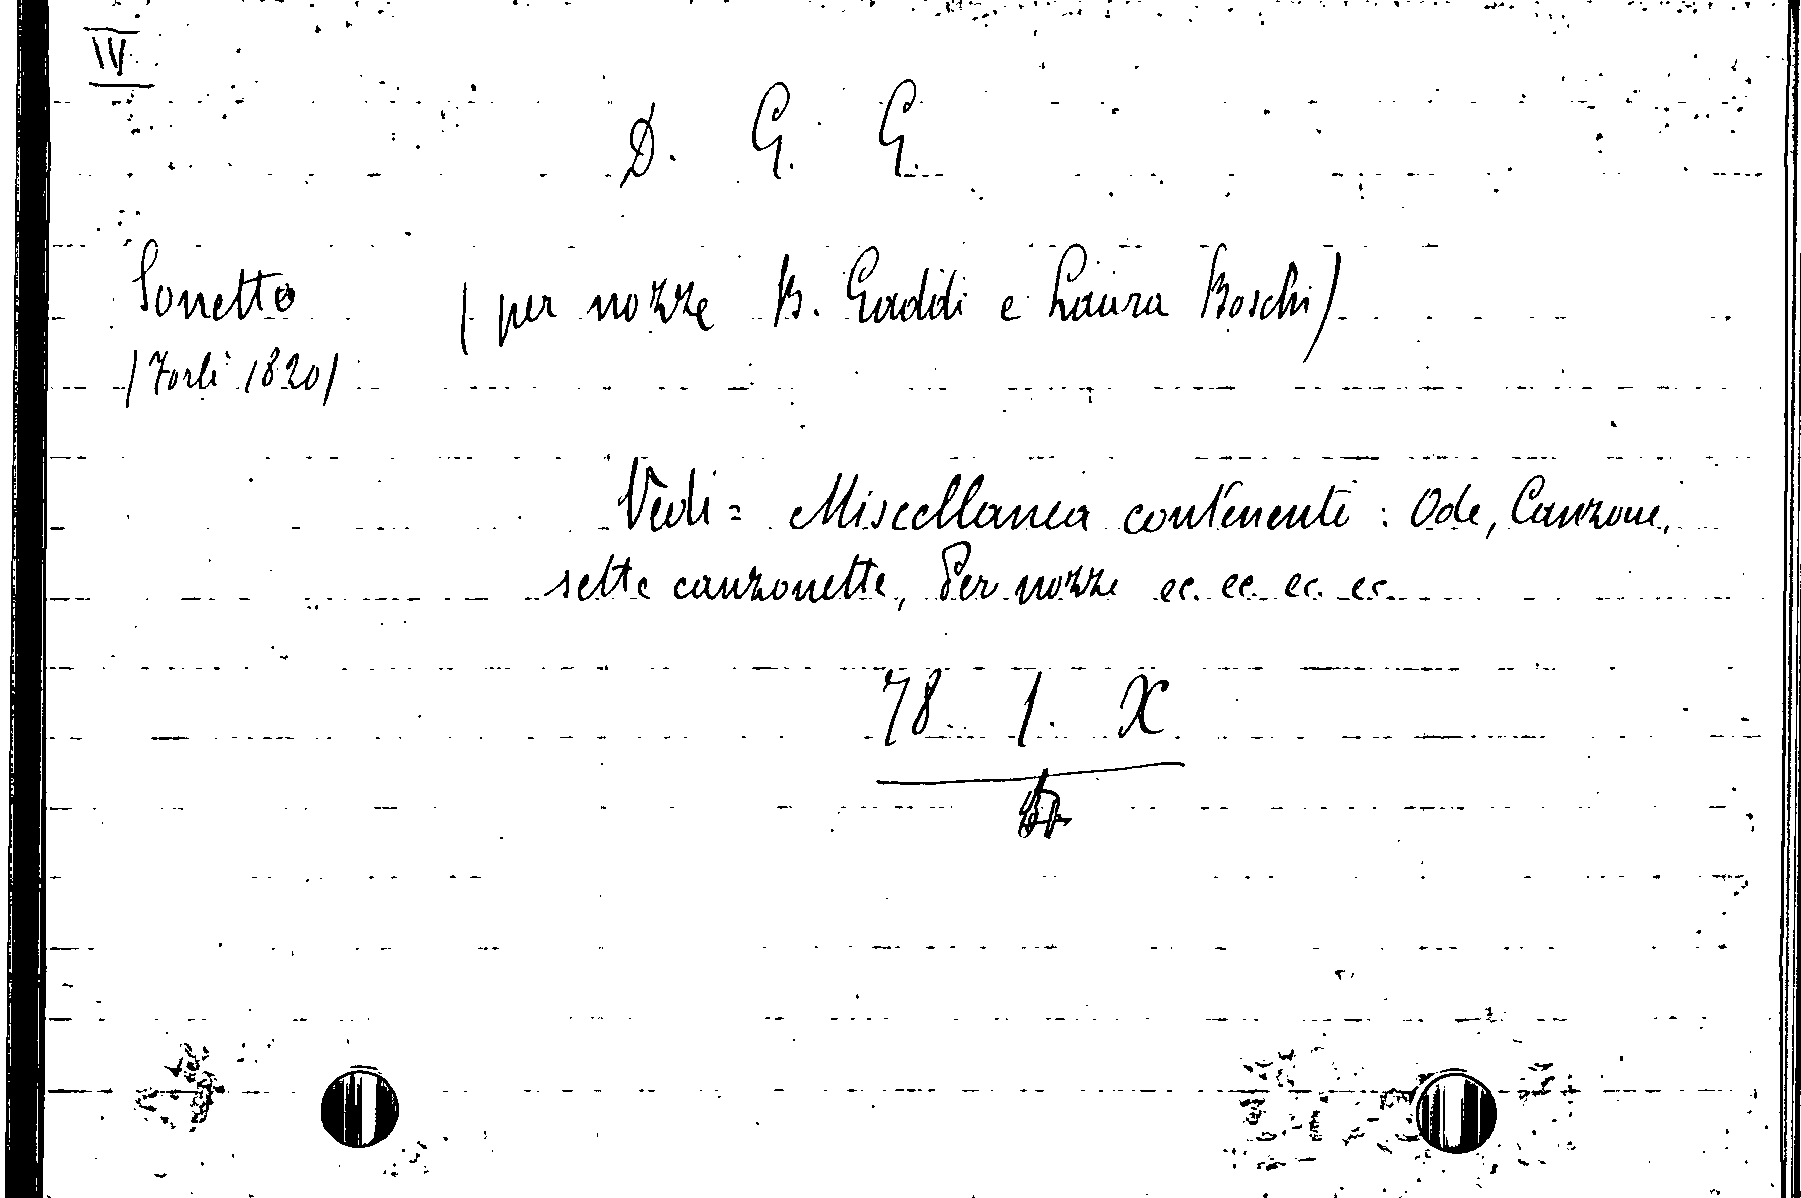 IV
D. G. G.
Sonetto (per nozze B. Gaddi e Laura Boschi)
(Forlì 1820)
Vedi = Miscellanea contenente : Ode, Canzone,
sette canzonette, Per nozze ec. ec. ec. ec.
78 1. X